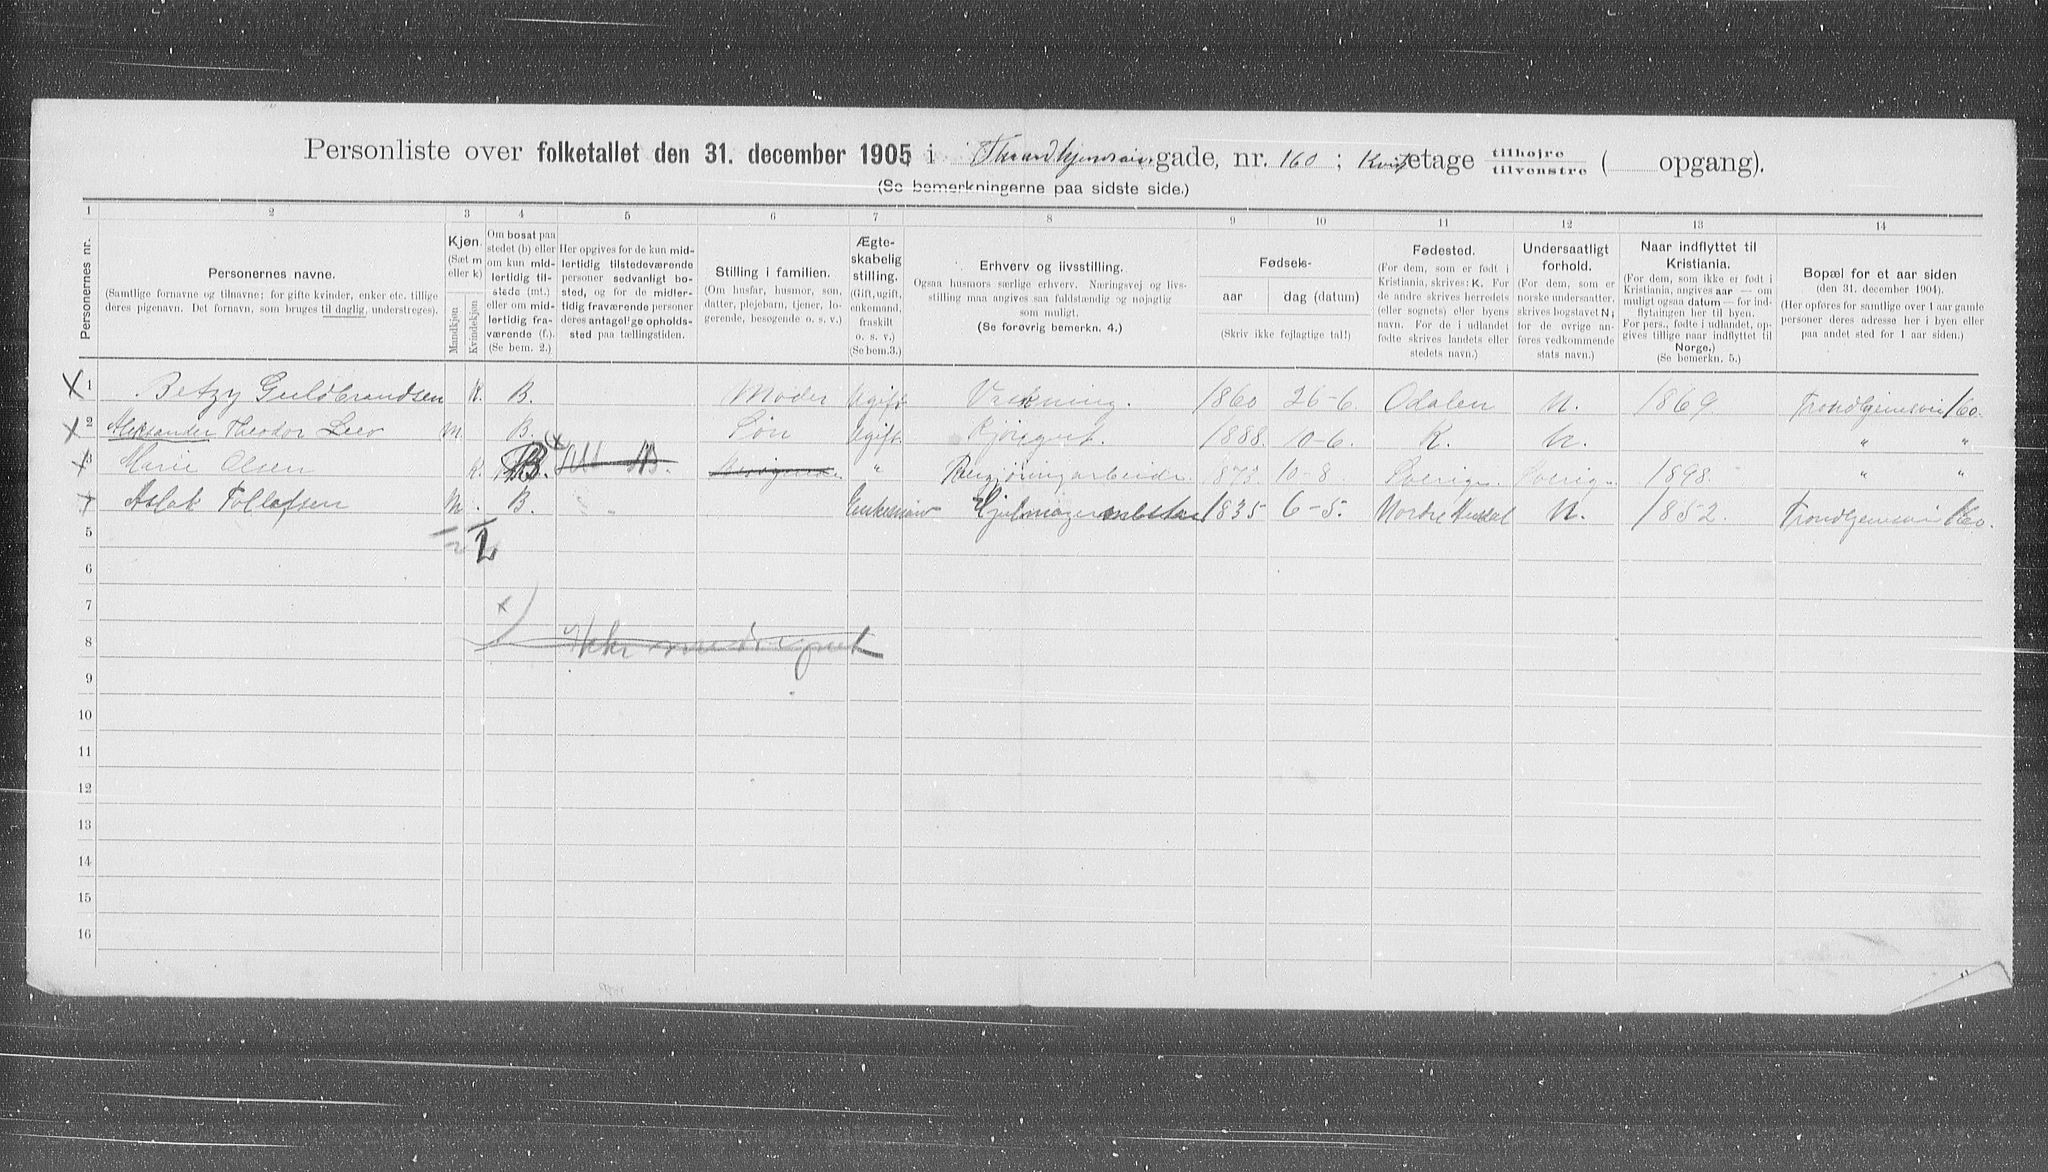 Personliste over folketallet den 31. december 1905 i Throndhjemsvei gade, nr. 160; Kvist etage tilhøjre tilvenstre ( opgang).
(Se bemerkningerne paa sidste side.)
1 2 3 4 5 6 7 8 9 10 11 12 13 14
Personernes nr.
Personernes navne.
(Samtlige fornavne og tilnavne; for gifte kvinder, enker etc. tillige
deres pigenavn. Det fornavn, som bruges til daglig, understreges).
Kjøn.
(Sæt m
eller k)
Mandkjøn
Kvindekjøn
Om bosat paa
stedet (b) eller
om kun mid-
lertidig til-
stede (mt.)
eller om mid-
lertidig fra-
værende (f.).
(Se bem. 2.)
Her opgives for de kun mid-
lertidig tilstedeværende
personer sedvanligt bo-
sted, og for de midler-
tidig fraværende personer
deres antagelige opholds-
sted paa tællingstiden.
Stilling i familien.
(Om husfar, husmor, søn,
datter, plejebarn, tjener, lo-
gerende, besøgende o. s. v.)
Ægte-
skabelig
stilling.
(Gift, ugift,
enkemand,
fraskilt
o. s. v.)
(Se bem.3.)
Erhverv og livsstilling.
Ogsaa husmors særlige erhverv. Næringsvej og livs-
stilling maa angives saa fuldstændig og nøjagtig
som muligt.
(Se forøvrig bemerkn. 4.)
Fødsels-
aar dag (datum)
(Skriv ikke fejlagtige tal!)
Fødested.
(For dem, som er født i
Kristiania, skrives: K. For
de andre skrives herredets
(eller sognets) eller byens
navn. For de i udlandet
fødte skrives landets eller
stedets navn.)
Undersaatligt
forhold.
(For dem, som er
norske undersaatter,
skrives bogstavet N;
for de øvrige an-
føres vedkommende
stats navn.)
Naar indflyttet til
Kristiania.
(For dem, som ikke er født i
Kristiania, angives aar — om
muligt ogsaa datum — for ind-
flytningen her til byen.
For pers., fødte i udlandet, op-
gives tillige naar indflyttet til
Norge.)
(Se bemerkn. 5.)
Bopæl for et aar siden
(den 31. december 1904).
(Her opføres for samtlige over 1 aar gamle
personer deres adresse her i byen eller
paa andet sted for 1 aar siden.)
X 1 Betzy Guldbrandsen K. B. Moder Ugift Vaskning. 1860 26-6. Odalen N. 1869 Trondhjemsvei 160.
X 2 Aleksander Theodor Leev M. B. Søn Ugift 1888. 10-6. K. N. " "
X 3 Marie Olsen K. B. (x " Rengjøringarbeide. 1873. 10-8. Sverige. Sverige 1898. " "
4 Aslak Tollefsen M. B. Enkemand 1835 6-5. Nordre N. 1852. Trondhjemsvei 160.
5
6
7 x)
8 Ikke medregnet
9
10
11
12
13
14
15
16